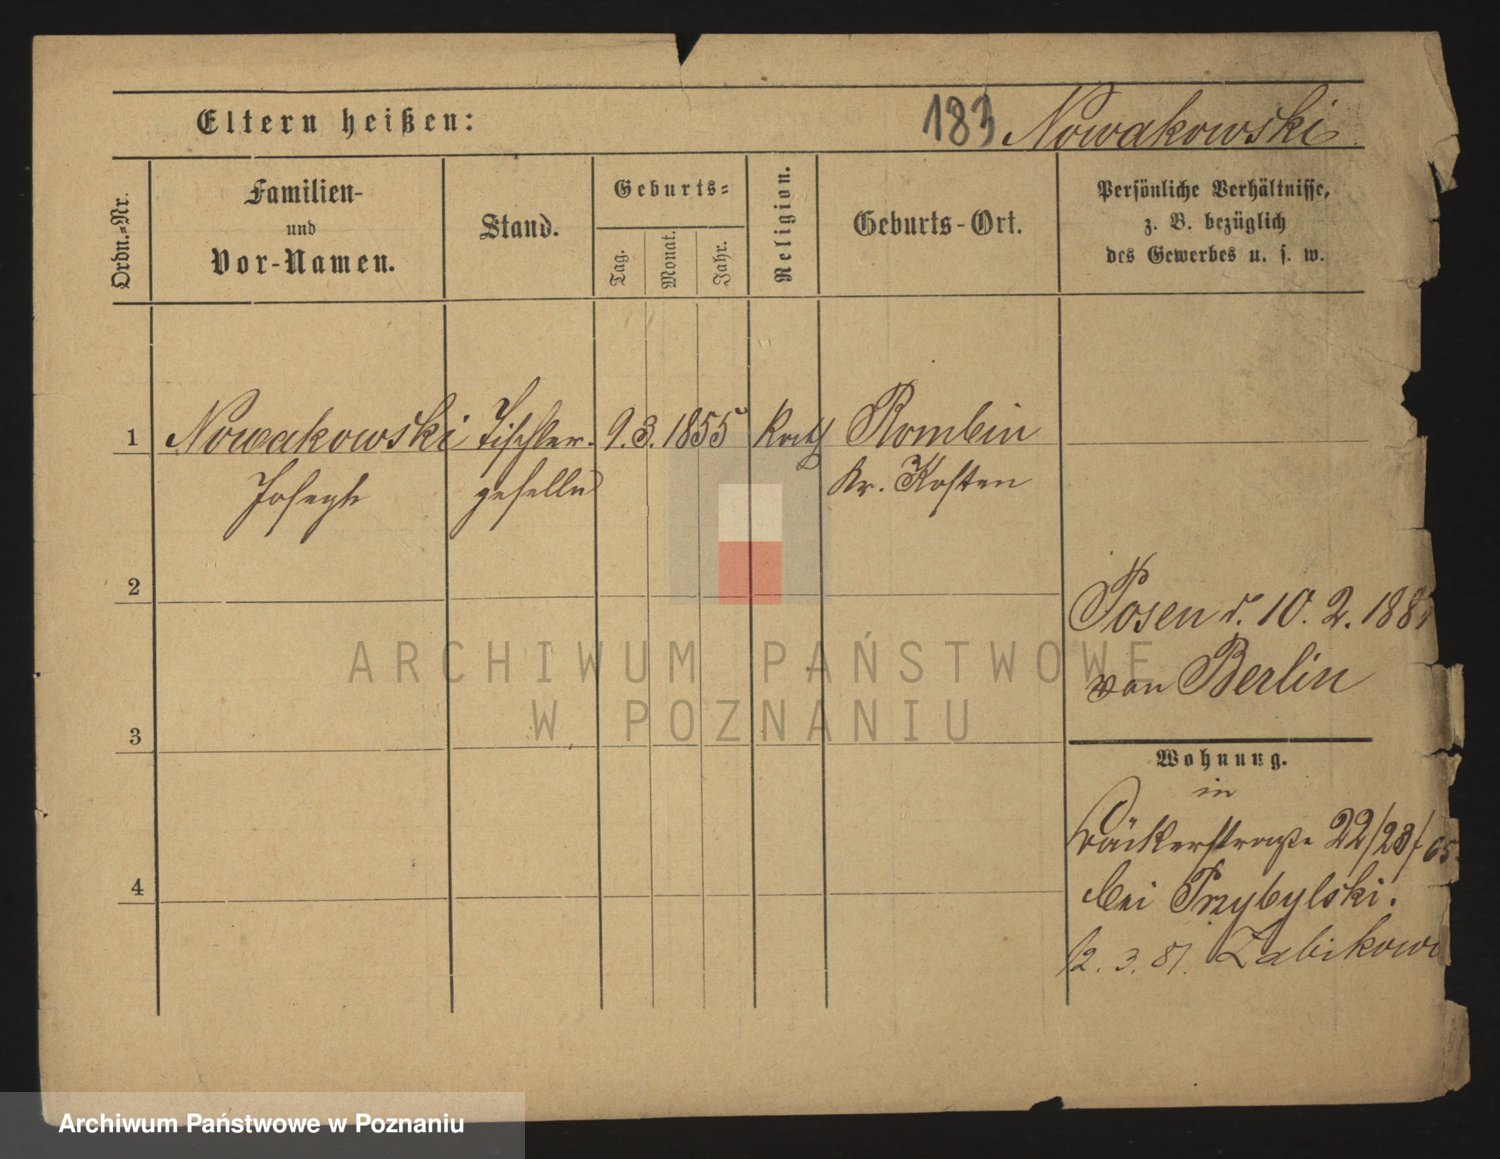 Eltern heißen:
183 Nowakowski
Ordn.-Nr.
Familien-
und
Vor-Namen.
Stand.
Geburts-
Tag.
Monat.
Jahr.
Religion.
Geburts-Ort.
Persönliche Verhältnisse,
z. B. bezüglich
des Gewerbes u. s. w.
1 Nowakowski Tischler- 9. 3. 1855 Kath Rombin
Joseph geselle Kr. Kosten
2
Posen d. 10. 2. 188
von Berlin
3
Wohnung.
in
Bäckerstraße 22/23/65
4
bei Przybylski.
12. 3. 81. Zabikowo
ARCHIWUM PAŃSTWOWE
W POZNANIU
Archiwum Państwowe w Poznaniu